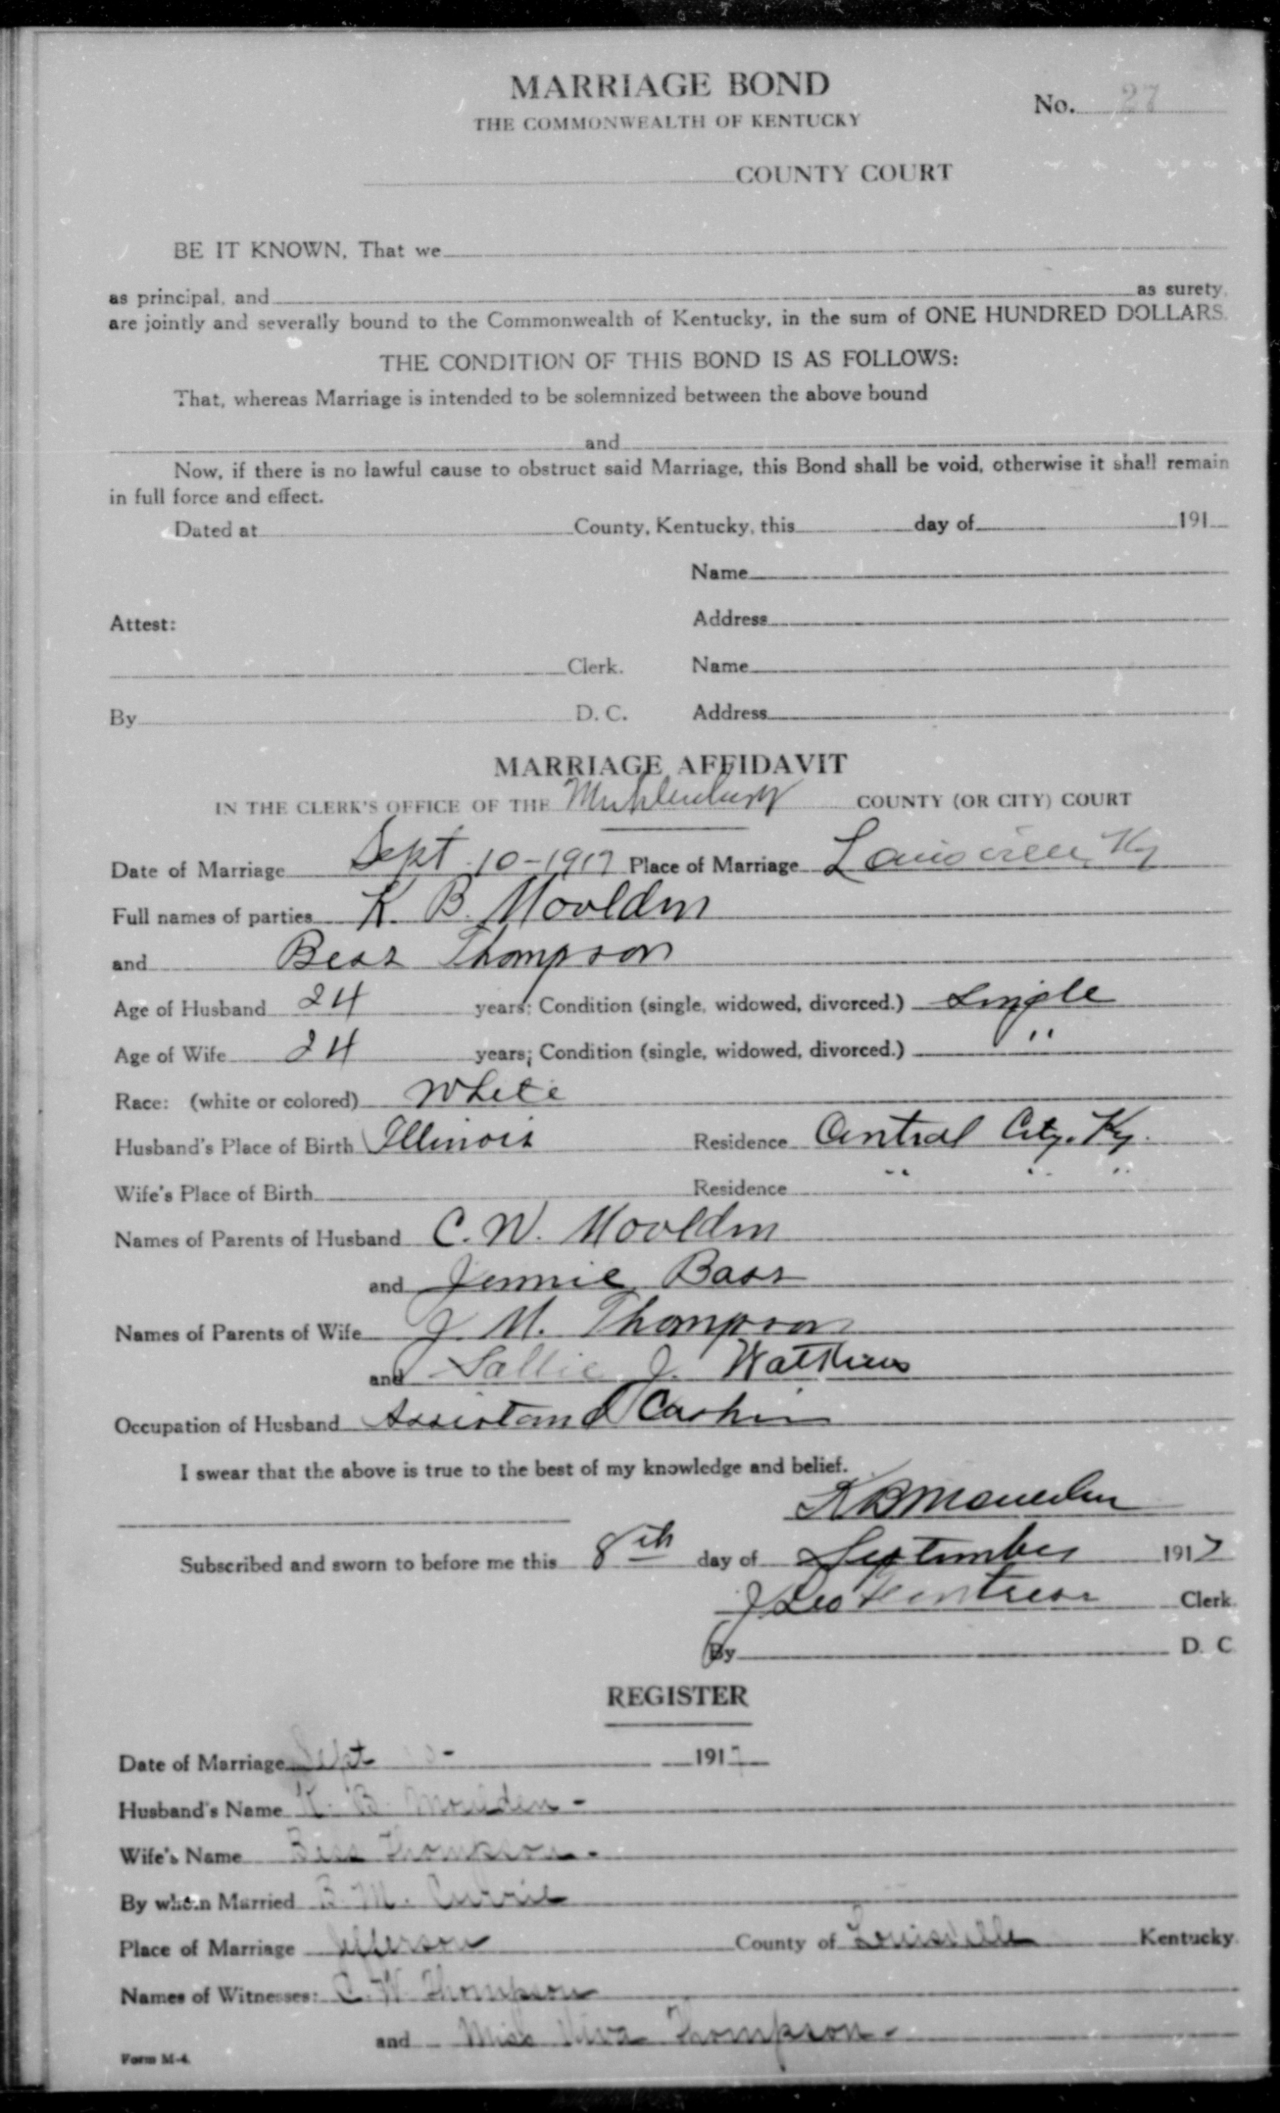 MARRIAGE BOND
THE COMMONWEALTH OF KENTUCKY
No. 27
COUNTY COURT
BE IT KNOWN, That we
as principal, and as surety,
are jointly and severally bound to the Commonwealth of Kentucky, in the sum of ONE HUNDRED DOLLARS.
THE CONDITION OF THIS BOND IS AS FOLLOWS:
That, whereas Marriage is intended to be solemnized between the above bound
and
Now, if there is no lawful cause to obstruct said Marriage, this Bond shall be void, otherwise it shall remain
in full force and effect.
Dated at County, Kentucky, this day of 191
Name
Attest: Address
Clerk. Name
By D. C. Address
MARRIAGE AFFIDAVIT
IN THE CLERK'S OFFICE OF THE Muhlenberg COUNTY (OR CITY) COURT
Date of Marriage Sept 10-1917 Place of Marriage Louisville, Ky
Full names of parties K. B. Moulden
and Bess Thompson
Age of Husband 24 years; Condition (single, widowed, divorced.) Single
Age of Wife 24 years; Condition (single, widowed, divorced.) "
Race: (white or colored) White
Husband's Place of Birth Illinois Residence Central City, Ky.
Wife's Place of Birth Residence " " "
Names of Parents of Husband C. W. Moulden
and Jennie Bass
Names of Parents of Wife J. M. Thompson
and Sallie J. Watkins
Occupation of Husband Assistand Cashier
I swear that the above is true to the best of my knowledge and belief.
K B Moulden
Subscribed and sworn to before me this 8th day of September 1917
J. Leo Clerk.
By D. C
REGISTER
Date of Marriage Sept 10- 1917
Husband's Name K. B. Moulden -
Wife's Name Bess Thompson -
By whom Married B. M. Currie
Place of Marriage Jefferson County of Louisville Kentucky.
Names of Witnesses: C. W. Thompson
and Miss Thompson -
Form M-4.